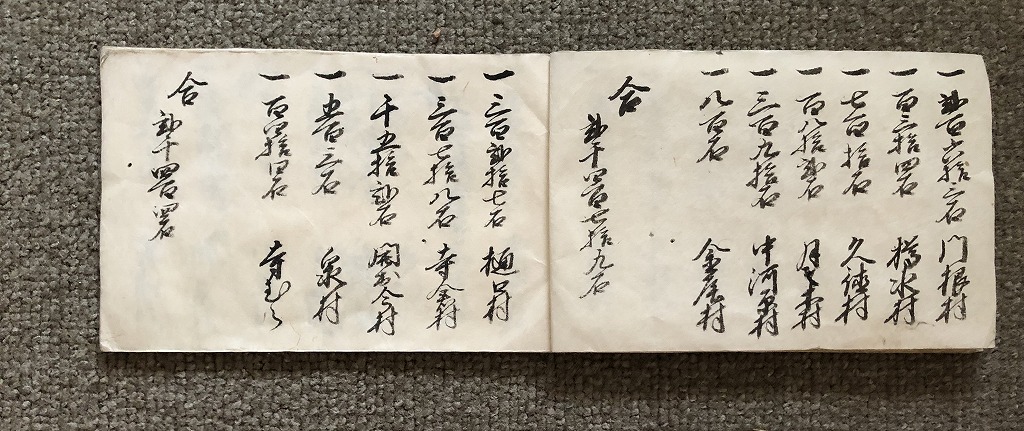 一 弐百六拾三石 門根村
一 百三拾四石 水村
一 七百拾石 久徳村
一 百八拾弐石 月之木村
一 三百九拾石 中河原村
一 八百石 金屋村
合
弐千四百七拾九石
一 三百弐拾七石 樋口村
一 三百七拾八石 寺倉村
一 千五拾弐石 開出今村
一 五百三石 泉村
一 百四拾四石 寺むら
合
弐千四百四石